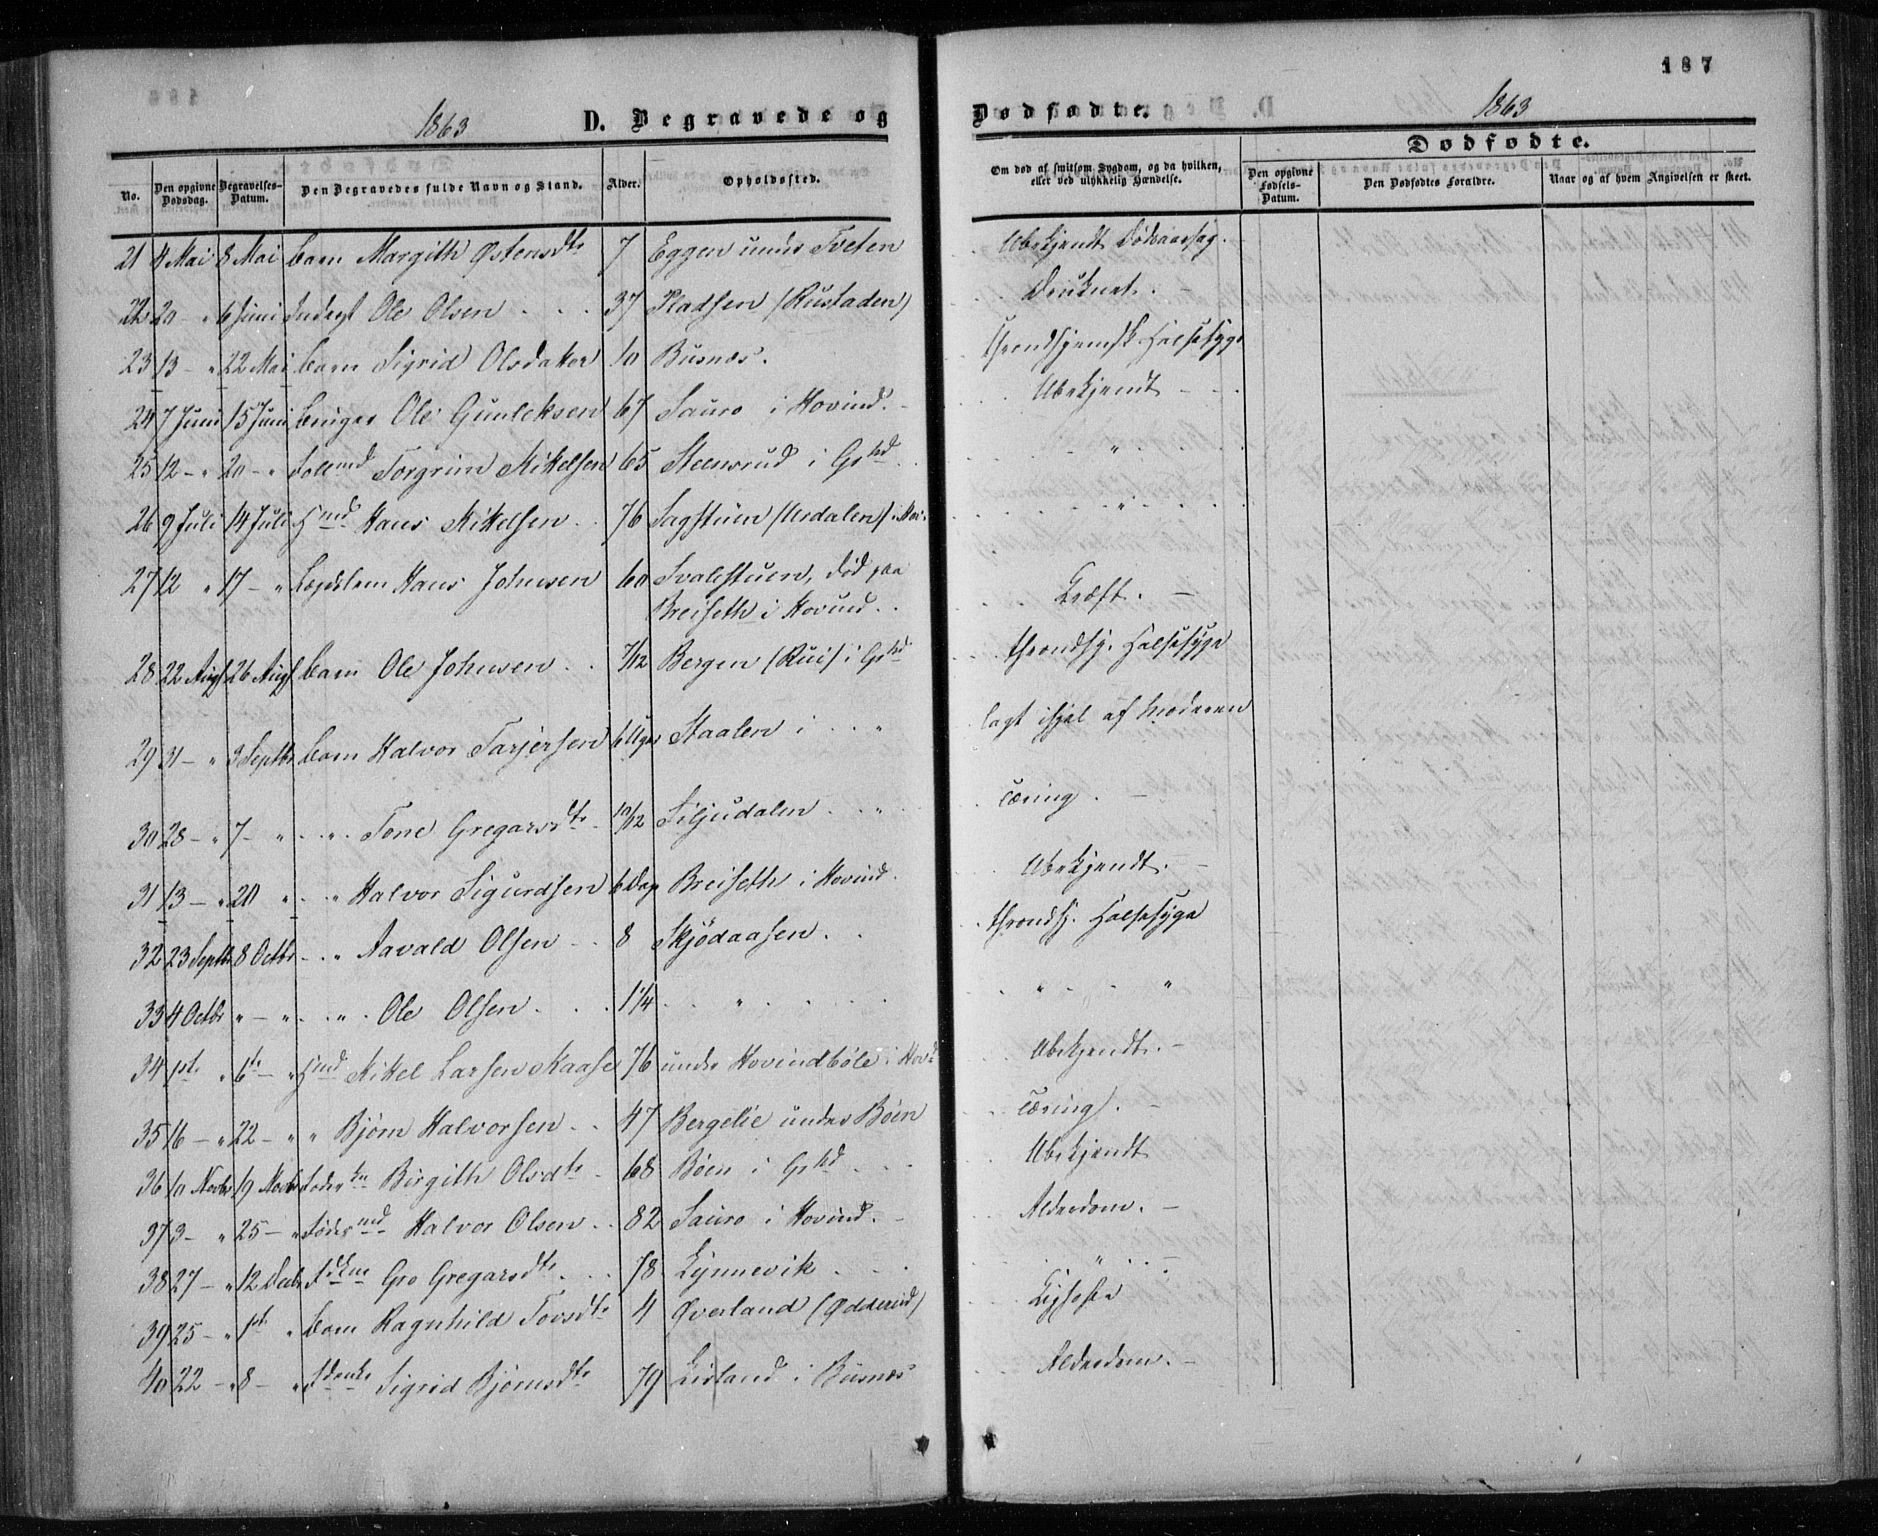 187
1863 D. Begravede og Dødfødte. 1863
Dødfødte.
No. Den opgivne Dødsdag. Begravelses-Datum. Den Begravedes fulde Navn og Stand. Alder. Opholdssted. Om død af smitsom Sygdom, og da hvilken, eller ved ulykkelig Hændelse. Den opgivne Fødsels-Datum. Den Dødfødtes Forældre. Naar og af hvem Angivelsen er skeet.
21 4 Mai 8 Mai barn Margith Østensdtr 7 Eggen under Tveten Ubekjendt Dødsaarsag.
22 20 - " 6 Juni Inderst Ole Olsen 37 Pladsen (Rustaden) Druknet. -
23 13 - " 22 Mai barn Sigrid Olsdatter 10 Busnæs. throndhjemsk Halsesyge
24 7 Juni 15 Juni Ole Gunleksen 67 Sauro i Hovind. - Ubekjendt -
25 12 - " 20 - " Torgrim Mikelsen 65 Steensrud i Gshd "
26 9 Juli 14 Juli Hmd Hans Mikelsen 76 Sagstuen (Uvdalen) i Hov. "
27 12 " 17 - " Lægdslem Hans Johnsen 60 Svalestuen, død paa
Breiseth i Hovind. Kræft. -
28 22 Augs 26 Augs barn Ole Johnsen 7/12 Bergen (Rui) i Gshd throndhj. Halsesyge
29 31 - " 3 Septbr barn Halvor Tarjersen 6 Uger Staalen i " lagt ihjel af Moderen
30 28 - " 7 - " " Tone Gregarsdtr 10/12 Siljudalen " Tæring. -
31 13 - " 20 " " Halvor Sigurdsen 6 Dag Breiseth i Hovind. Ubekjendt. -
32 23 Septbr 8 Octbr " Aavald Olsen 8 Skjödaasen. throndhj. Halsesyge
33 4 Octbr " - " " Ole Olsen 1 1/4 " " "
34 1ste " 6te - " Hmd Mikel Larsen Kaase 76 under Hovindbøle i Hovd Ubekjendt. -
35 16 - " 22 - " " Bjørn Halvorsen 47 Bergelie under Böen Tæring. -
36 10 Novbr 19 Novbr Birgith Olsdtr 68 Böen i Gshd Ubekjendt
37 3 - " 25 - " Födermd Halvor Olsen 82 Sauro i Hovind. - Alderdom. -
38 27 - " 12 Decbr Gro Gregarsdtr 78 Lynnevik "
39 25 - " 1ste " barn Ragnhild Tovsdtr 4 Øverland (Odderud) Kighoste
40 22 - " 8 - " Sigrid Bjørnsdtr 79 Lisland i Busnæs Alderdom. -